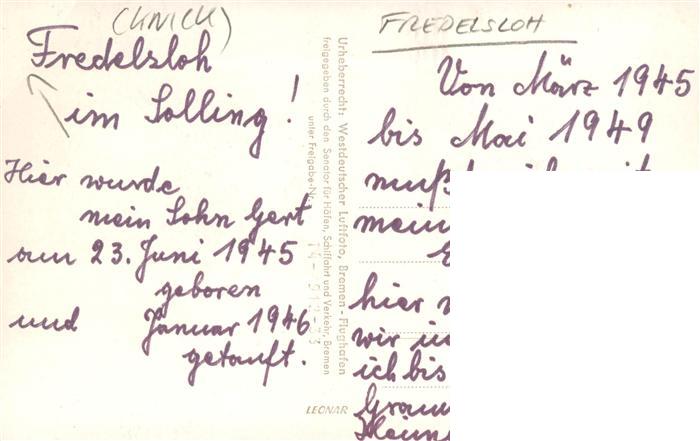 (KNICK)
Fredelsloh
im Solling!
Hier wurde
mein Sohn Gert
am 23. Juni 1945
geboren
und Januar 1946
getauft.
Urheberrecht: Westdeutscher Luftfoto, Bremen - Flughafen
freigegeben durch den Senator für Häfen, Schiffahrt und Verkehr, Bremen
unter Freigabe-Nr.
LEONAR
FREDELSLOH
Von März 1945
bis Mai 1949
hier
wir
ich bis